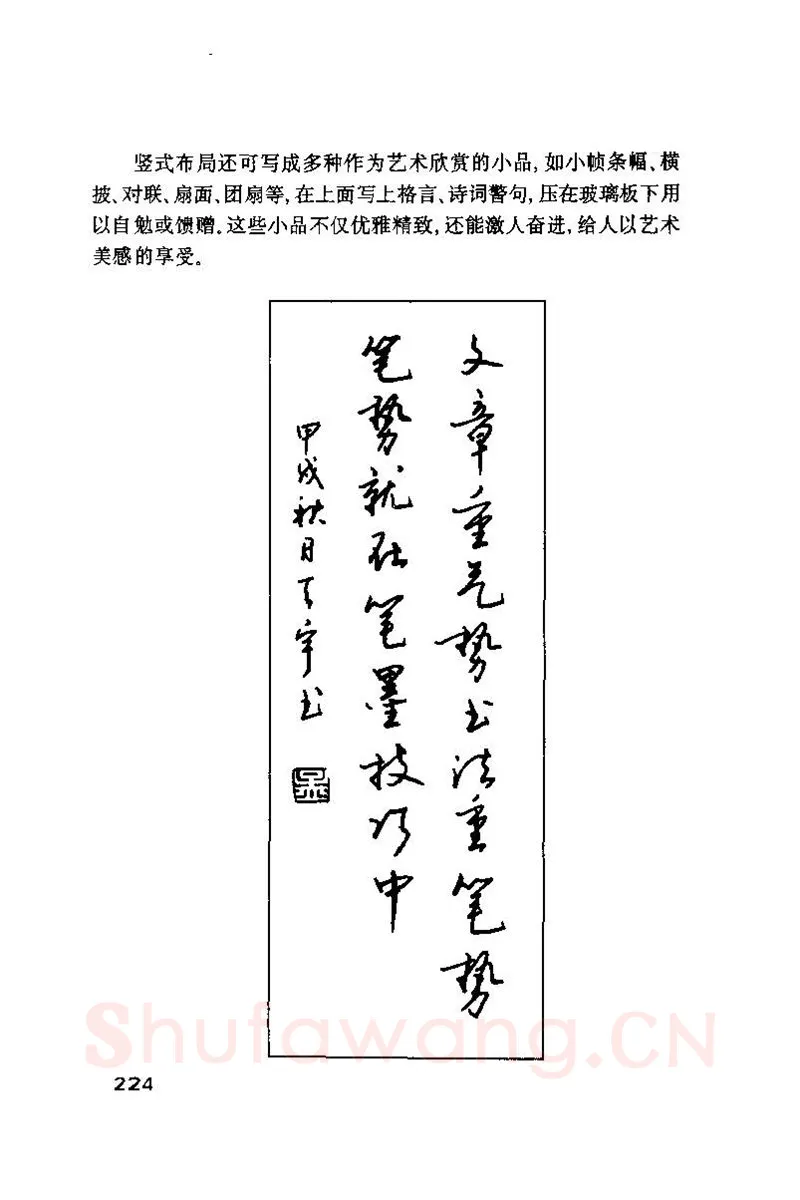 竖式布局还可写成多种作为艺术欣赏的小品,如小帧条幅、横
披、对联、扇面、团扇等,在上面写上格言、诗词警句,压在玻璃板下用
以自勉或馈赠。这些小品不仅优雅精致,还能激人奋进,给人以艺术
美感的享受。
文章重气势书法重笔势
笔势就在笔墨技巧中
甲戌秋日丁宇书
Shufawang.CN
224